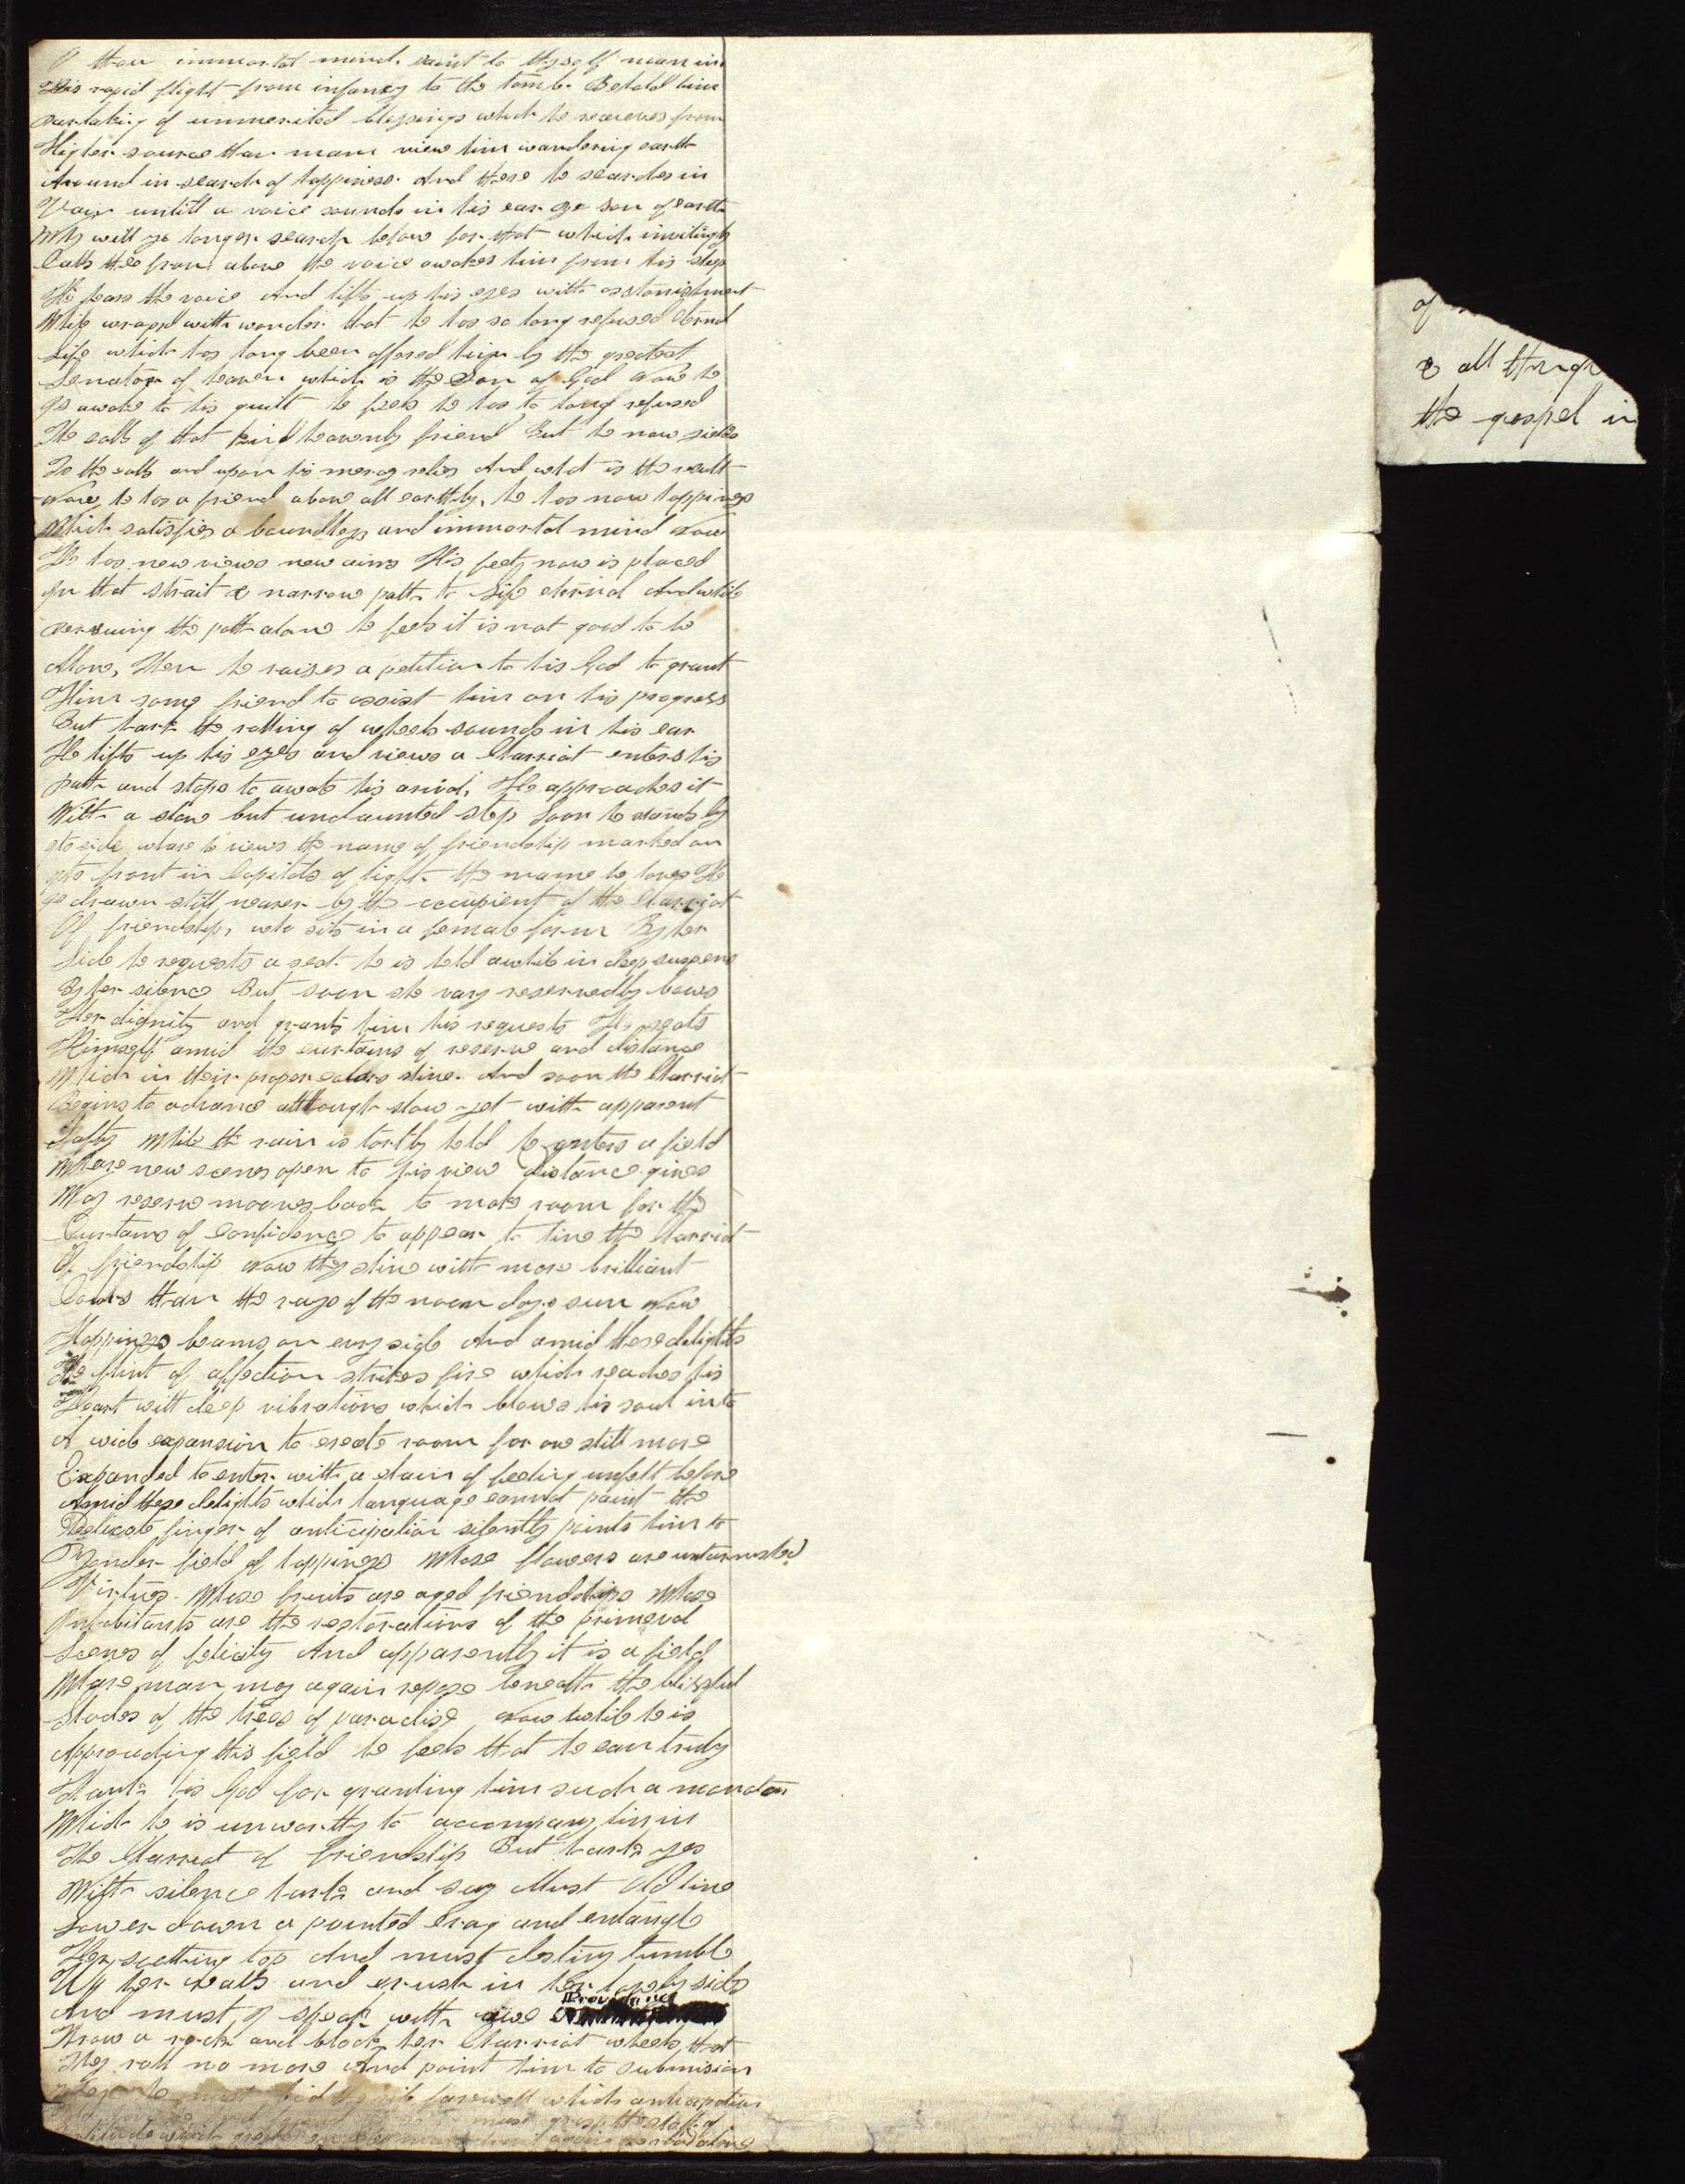 O thou immortal mind. paint to thyself man in
His rapid flight from infancy to the tomb. Behold him
Partaking of unmerited blessings which he receives from
Higher source than man view him wandering earth
Around in search of happiness. And there he searches in
Vain untill a voice sounds in his ear ye son of earth
Why will ye longer search below for that which invitingly
Calls thee from above the voice awakes him from his sleep
He hears the voice And lifts up his eyes with astonishment
While wraped with wonder that he has so long refused eternal
Life which has long been offered him by the greatest
Senator of heaven which is the Son of God Now he
Is awake to his guilt he feels he has to long refused
The calls of that kind heavenly friend But he now yields
To the calls and upon his mercy relies And what is the result
Now he has a friend above all earthly, he has now happiness
Which satisfies a boundless and immortal mind Now
He has new views new aims His feet now is placed
In that strait & narrow path to life eternal And while
Persuing the path alone he feels it is not good to be
Alone, Then he raises a petition to his God to grant
Him some friend to assist him on his progress
But hark the rolling of wheels sounds in his ear
He lifts up his eyes and views a Charriot enters his
path and stops to awate his arival, He approaches it
With a slow but undaunted step Soon he stands by
its side where he views the name of friendship marked on
its front in Capitals of light the name he loves He
is drawn still nearer by the occupient of the Charriot
Of friendship, who sits in a female form By her
Side he requests a seat. he is held awhile in deep suspens
By her silence But soon she very reservedly bows
Her dignity and grants him his requests He seats
Himself amid the curtains of reserve and distance
Which in their proper colors shine. And soon the Charriot
Begins to advance although slow yet with apparent
Safty While the rain is tortly held he enters a field
Where new scenes open to his view distance gives
Way reserve mooves back to make room for the
Curtains of confidence to appear to line the Charriot
Of friendship Now they shine with more brilliant
Colors than the rays of the noon days sun Now
Happiness beams on evry side And amid these delights
The flint of affection strikes fire which reaches his
Heart with deep vibrations which blows his soul into
A wide expansion to create room for one still more
Expanded to enter with a chain of feeling unfelt before
Amid these delights which language cannot paint the
Delicate finger of anticipation silently points him to
Yonder field of happiness Whose flowers are untarnished
Virtues. Whose fruits are aged friendships Whose
Inhabitants are the restorations of the primeval
Scenes of felicity And apparently it is a field
Where man may again repose beneath the blissful
Shades of the trees of paradise Now while he is
Approaching this field he feels that he can truly
Thank his God for granting him such a
Which he is unworthy to accompany him in
The Charreot of friendship But hark yes
With silence hark and say Must Old time
Lower down a pointed crag and entangle
Her top And must destiny tumble
Up her walls and crush in her lovely side
And must I speak with awe Providence
Throw a rock and block her Charriot wheels that
They roll no more And point him to submision
must bid farewell which anticipation
must grasp the staff of

of
& all things
the gospel in